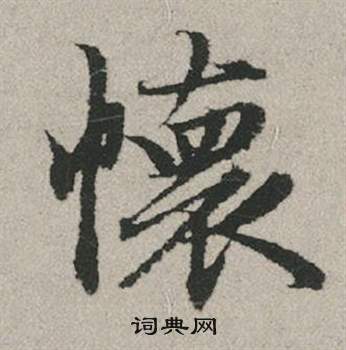 懷
词典网